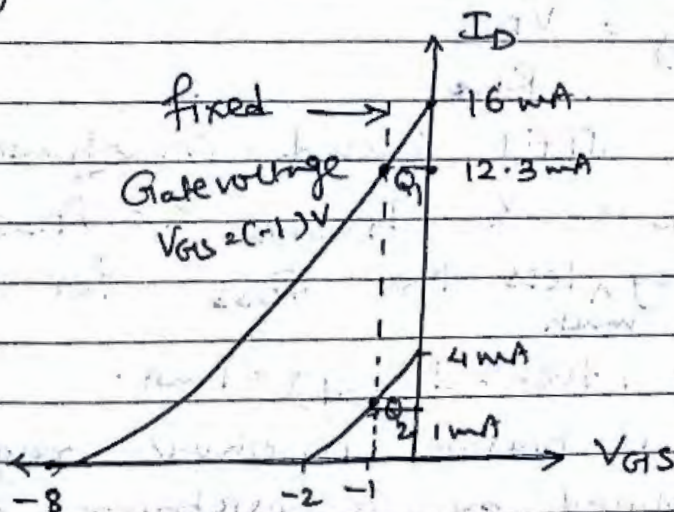 I_D
fixed → 16 mA.
Gate voltage Q1 12.3 mA
V_GS = (-1) V
4 mA
Q2 1 mA
V_GS
-8 -2 -1